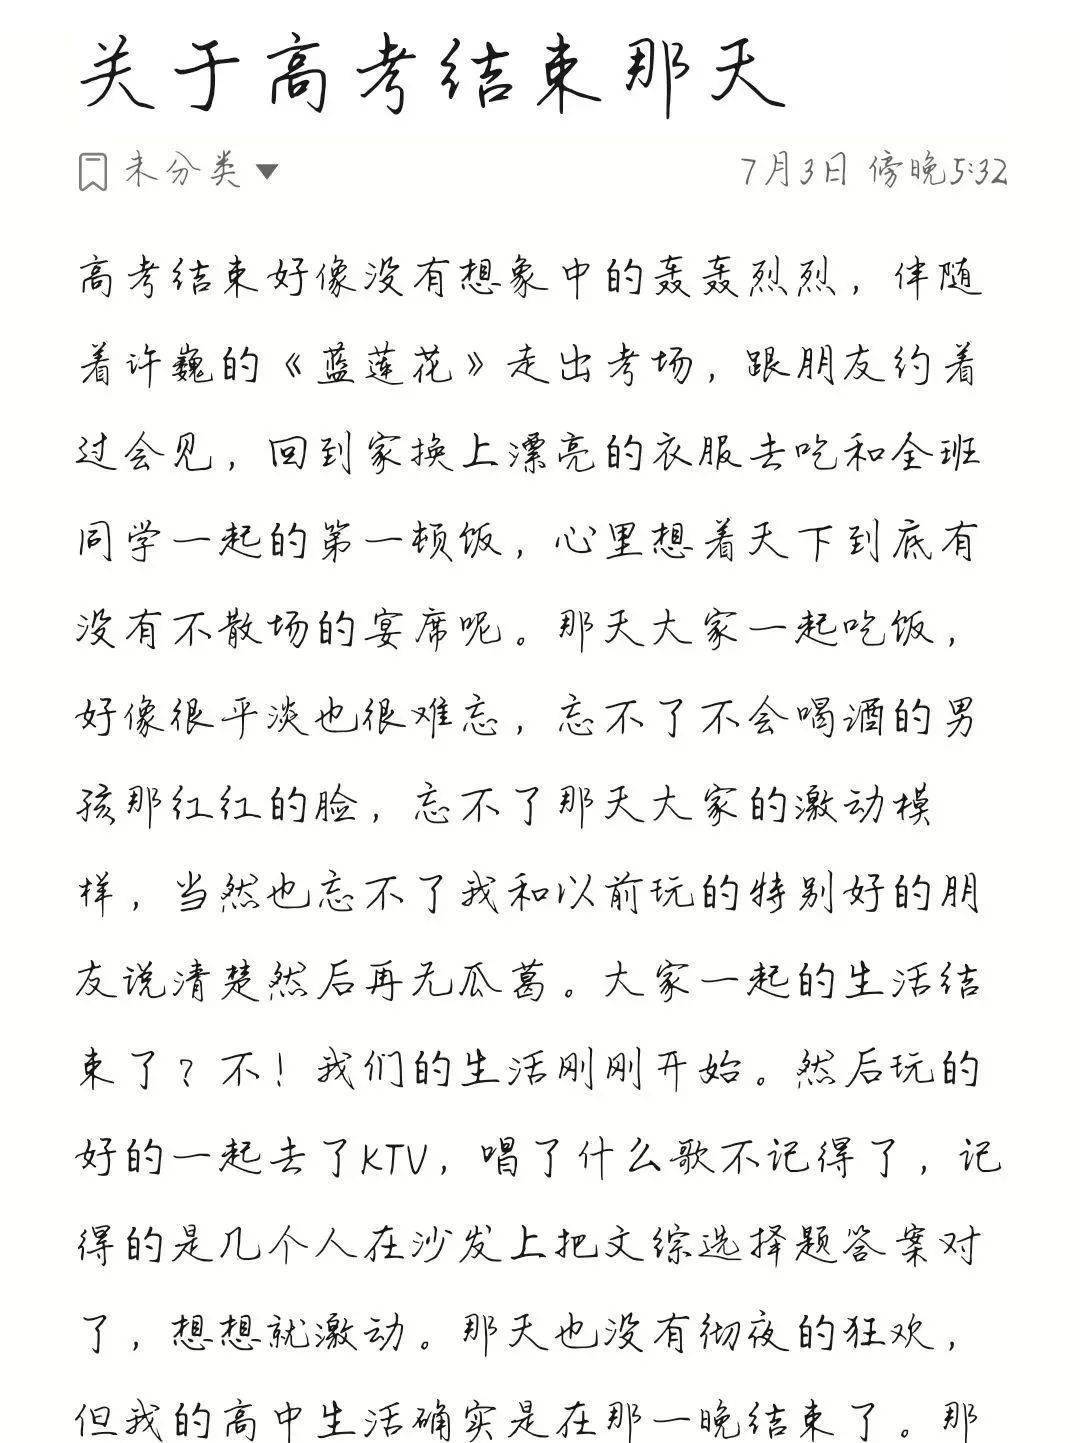 关于高考结束那天
未分类 7月3日 傍晚5:32
高考结束好像没有想象中的轰轰烈烈，伴随
着许巍的《蓝莲花》走出考场，跟朋友约着
过会见，回到家换上漂亮的衣服去吃和全班
同学一起的第一顿饭，心里想着天下到底有
没有不散场的宴席呢。那天大家一起吃饭，
好像很平淡也很难忘，忘不了不会喝酒的男
孩那红红的脸，忘不了那天大家的激动模
样，当然也忘不了我和以前玩的特别好的朋
友说清楚然后再无瓜葛。大家一起的生活结
束了？不！我们的生活刚刚开始。然后玩的
好的一起去了KTV，唱了什么歌不记得了，记
得的是几个人在沙发上把文综选择题答案对
了，想想就激动。那天也没有彻夜的狂欢，
但我的高中生活确实是在那一晚结束了。那